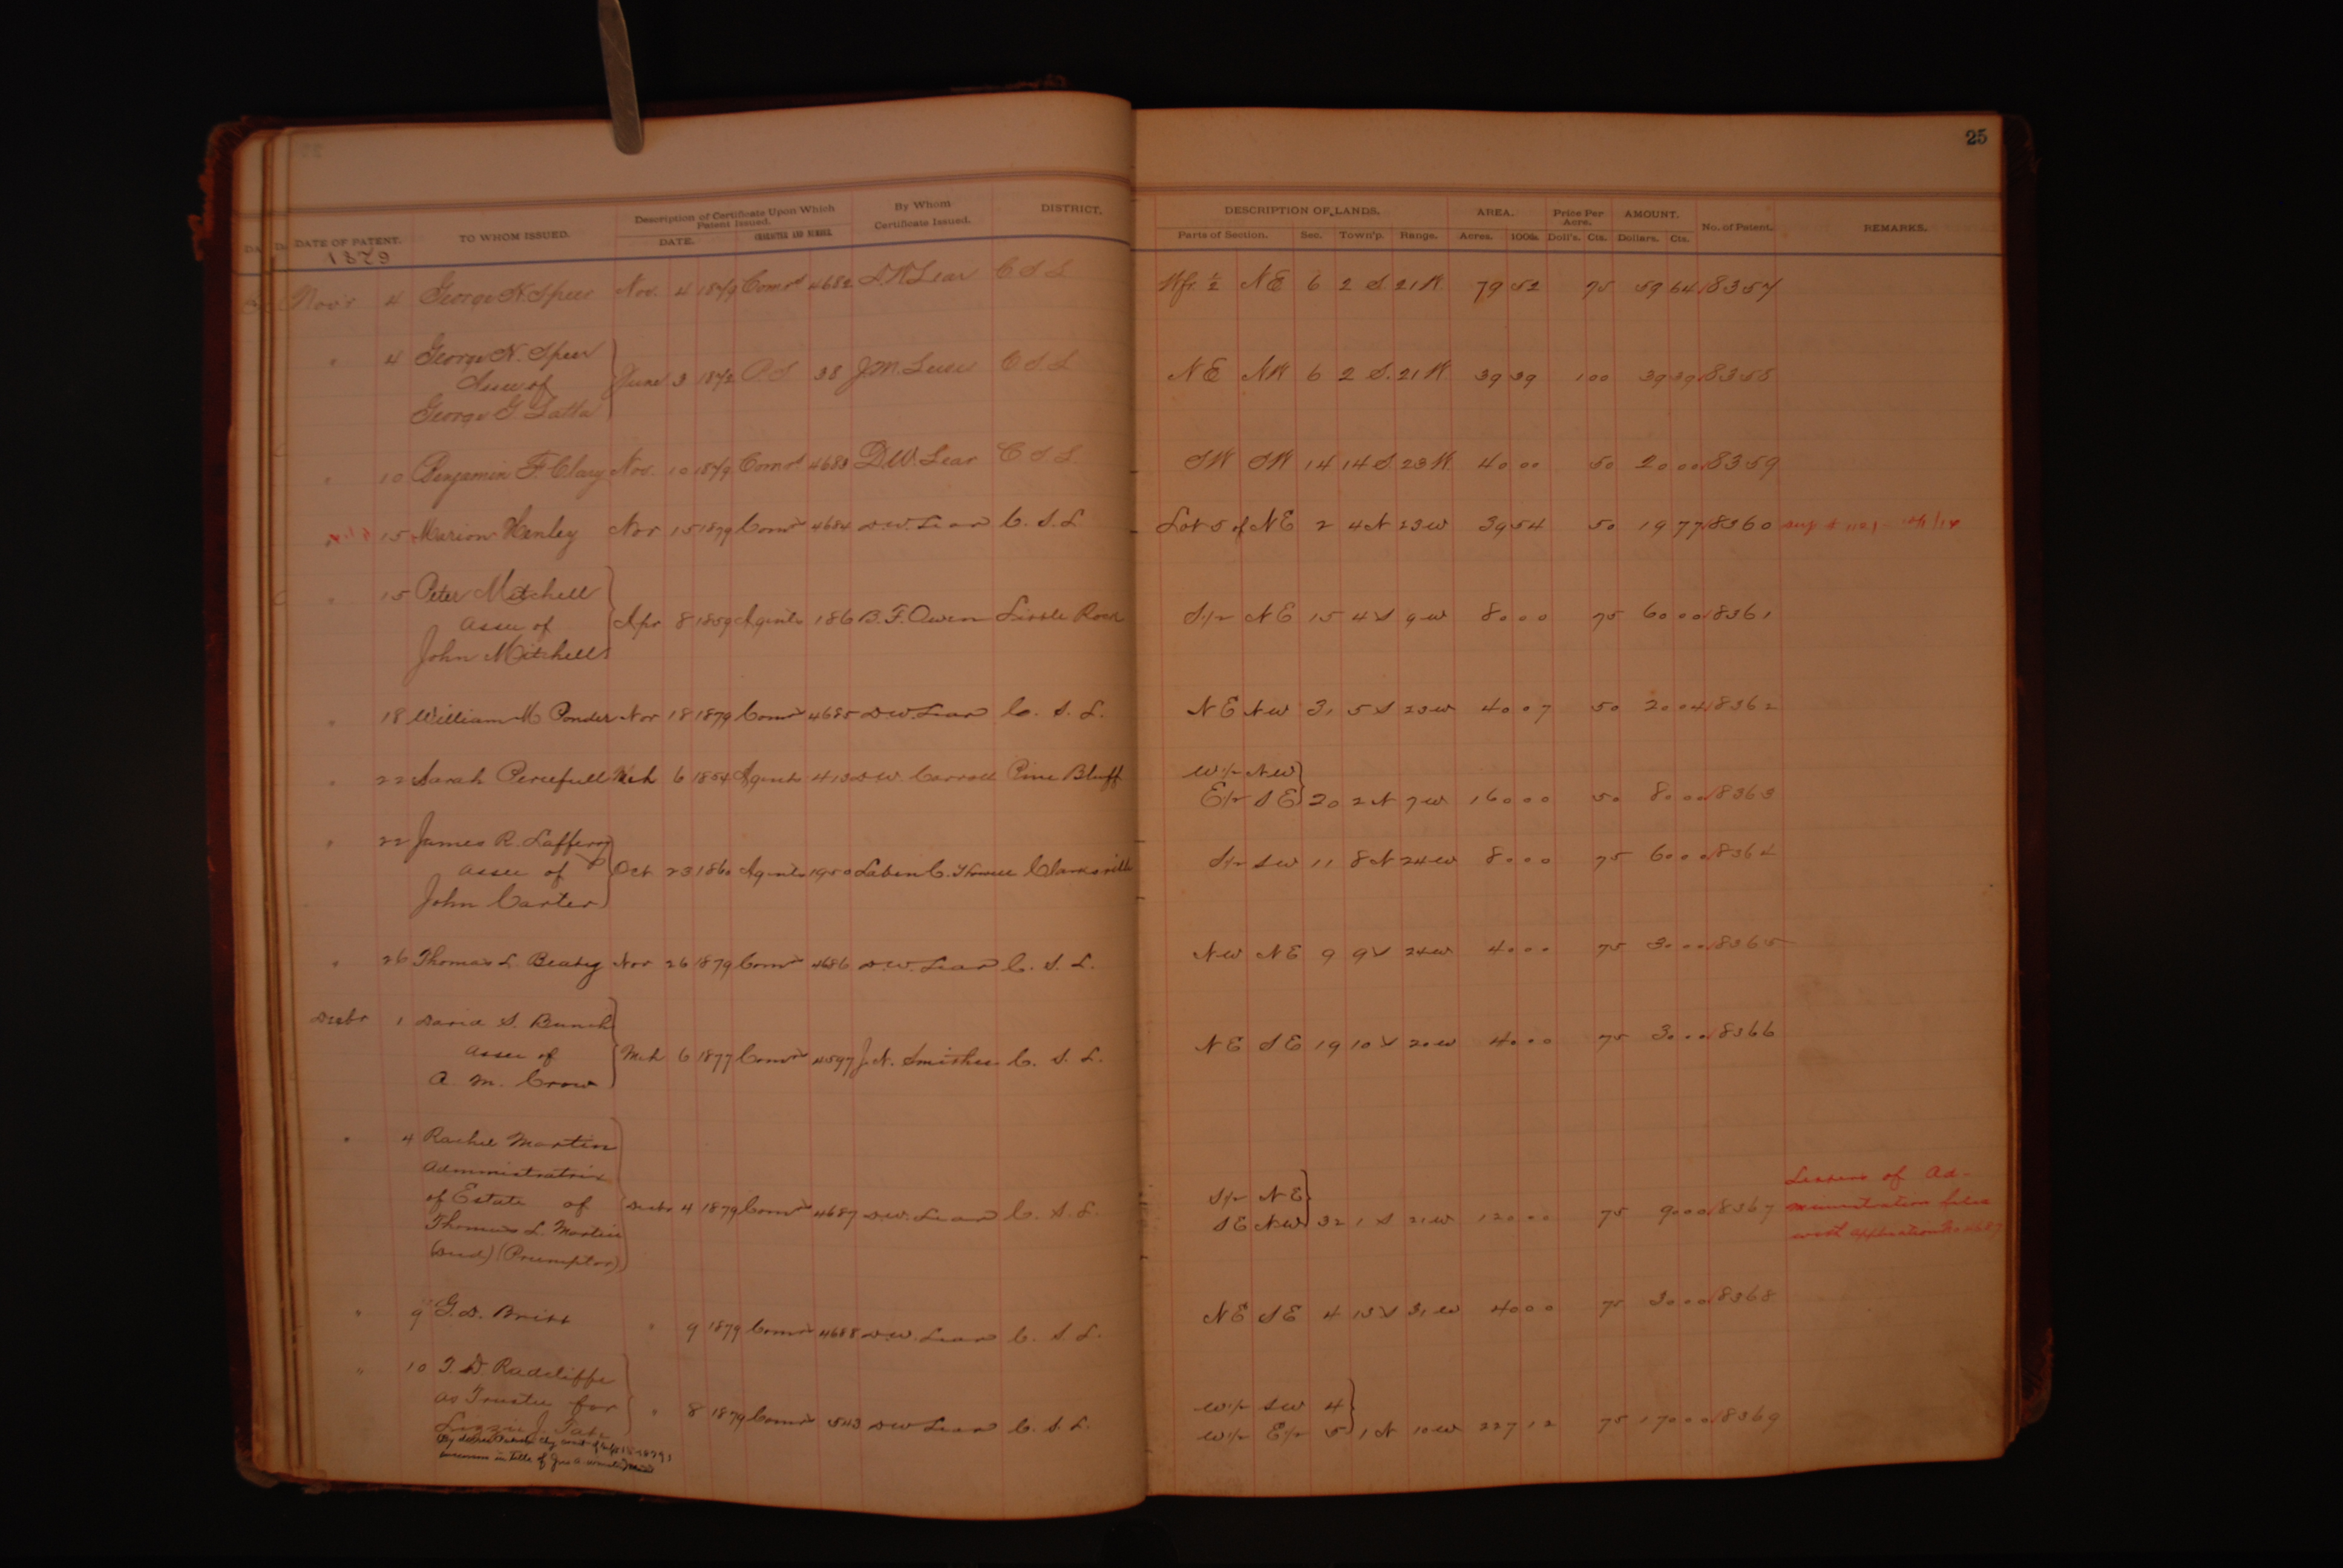 25
DATE OF PATENT. TO WHOM ISSUED. Description of Certificate Upon Which Patent Issued. DATE. CHARACTER AND NUMBER. By Whom Certificate Issued. DISTRICT. DESCRIPTION OF LANDS. Parts of Section. Sec. Town'p. Range. AREA. Acres. 100ths. Price Per Acre. Doll's. Cts. AMOUNT. Dollars. Cts. No. of Patent. REMARKS.
1879
Nov'r 4 George N. Speer Nov. 4 1879 Comrs 4682 D.W. Lear C S L Wfr ½ NE 6 2 S. 21 W. 79 52 75 59 64 18357
" 4 George N. Speer
Assee of June 3 1872 P.S 38 J.M. Lewis C S L NE NW 6 2 S. 21 W. 39 39 1 00 39 39 18358
George G. Latta
" 10 Benjamin F. Clary Nov. 10 1879 Comrs 4683 D.W. Lear C S L SW SW 14 14 S 23 W. 40 00 50 20 00 18359
" 15 Marion Henley Nov 15 1879 Comrs 4684 D.W. Lear C. S. L Lot 5 of NE 2 4 N 23 W 39 54 50 19 77 18360
" 15 Peter Mitchell
assee of Apr 8 1859 Agents 186 B. F. Owen Little Rock S ½ NE 15 4 S 9 W 80 00 75 60 00 18361
John Mitchell
" 18 William M Ponder Nov 18 1879 Comrs 4685 D.W. Lear C. S. L. NE NW 31 5 S 23 W 40 07 50 20 04 18362
" 22 Sarah Percefull Mch 6 1854 Agents 413 D.W. Carroll Pine Bluff W ½ NW
E ½ SE 20 2 N 7 W 160 00 50 80 00 18363
" 22 James R. Lafferry
assee of Oct 23 1860 Agents 1950 Laben C. Howell Clarksville S ½ SW 11 8 N 24 W 80 00 75 60 00 18364
John Carter
" 26 Thomas L. Beaty Nov 26 1879 Comrs 4686 D.W. Lear C. S. L. NW NE 9 9 S 24 W 40 00 75 30 00 18365
Decbr 1 David S. Bunch
assee of Mch 6 1877 Comrs 4597 J. N. Smithee C. S. L. NE SE 19 10 S 20 W 40 00 75 30 00 18366
A. M. Crow
" 4 Rachel Martin
Administratrix
of Estate of Decbr 4 1879 Comrs 4687 D.W. Lear C. S. L. S ½ NE
SE NW 32 1 S 21 W 120 00 75 90 00 18367 Letters of Ad-
ministration filed
with application No 4687
Thomas L. Martin
(Decd) (Preemptor)
" 9 G. D. Britt " 9 1879 Comrs 4688 D.W. Lear C. S. L. NE SE 4 13 S 31 W 40 00 75 30 00 18368
" 10 T. D. Radcliffe
as Trustee for " 8 1879 Comrs 543 D.W Lear C. S. L. W ½ SW 4
W ½ E ½ 5 1 N 10 W 227 12 75 170 00 18369
Lizzie J. Tate